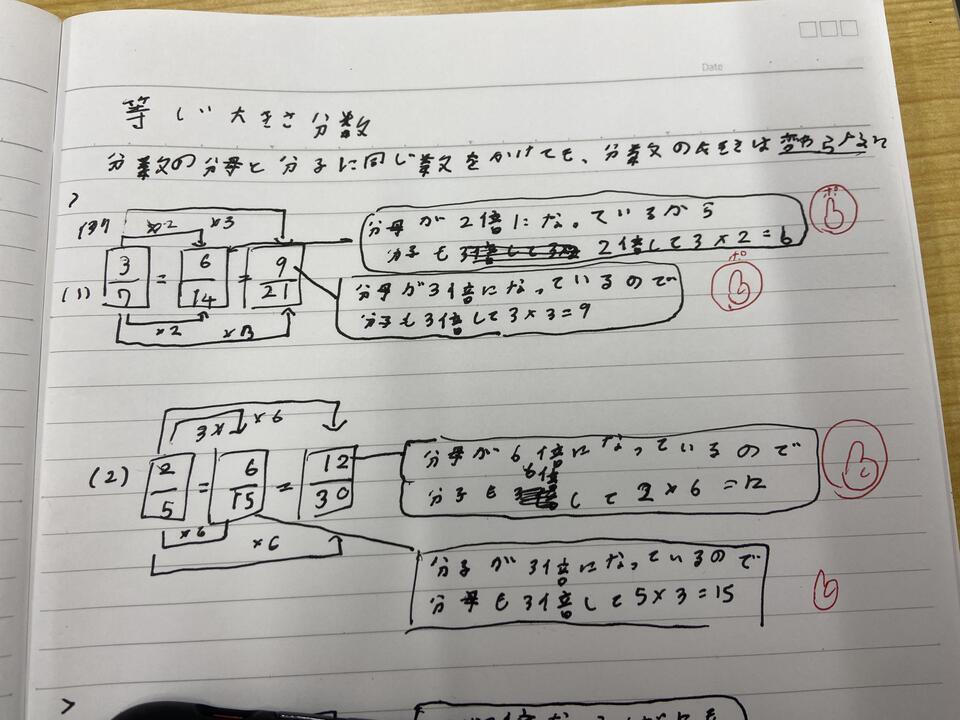 Date
等しい大きさ分数
分数の分母と分子に同じ数をかけても、分数の大きさは変わらない
例
×2 ×3
分母が2倍になっているから
分子も 2倍して3×2=6
(1) 3/7 = 6/14 = 9/21
分母が3倍になっているので
分子も3倍して3×3=9
×2 ×3
3× ×6
(2) 2/5 = 6/15 = 12/30
分母が6倍になっているので
分子も6倍して2×6=12
×6
×6
分子が3倍になっているので
分母も3倍して5×3=15